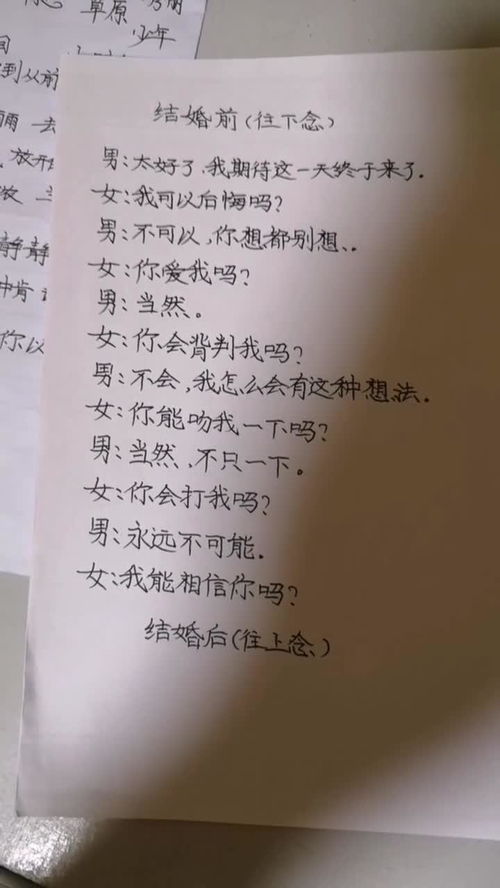 草原
少年
到从前
放开
静静
你以
结婚前(往下念)
男:太好了,我期待这一天终于来了.
女:我可以后悔吗?
男:不可以,你想都别想.
女:你爱我吗?
男:当然。
女:你会背判我吗?
男:不会,我怎么会有这种想法.
女:你能吻我一下吗?
男:当然,不只一下。
女:你会打我吗?
男:永远不可能.
女:我能相信你吗?
结婚后(往上念)